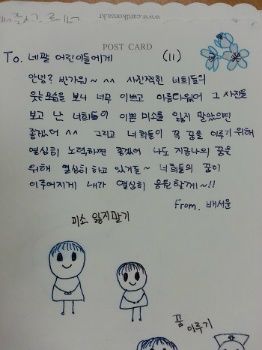 www.cardkorea.kr
POST CARD
To. 네팔 어린이들에게
(11)
안녕? 반가워~ ^^ 사진찍힌 너희들의
웃는모습을 보니 너무 이쁘고 아름다웠어 그 사진들
보고 난 너희들이 이쁜 미소를 잃지 말았으면
좋겠어 ^^ 그리고 너희들이 꼭 꿈을 이루기 위해
열심히 노력하면 좋겠어 나도 지금 나의 꿈을
위해 열심히 하고 있거든~ 너희들의 꿈이
이루어지게 내가 열심히 응원할게~!!
From. 배서윤
미소 잃지말기
꿈
이루기